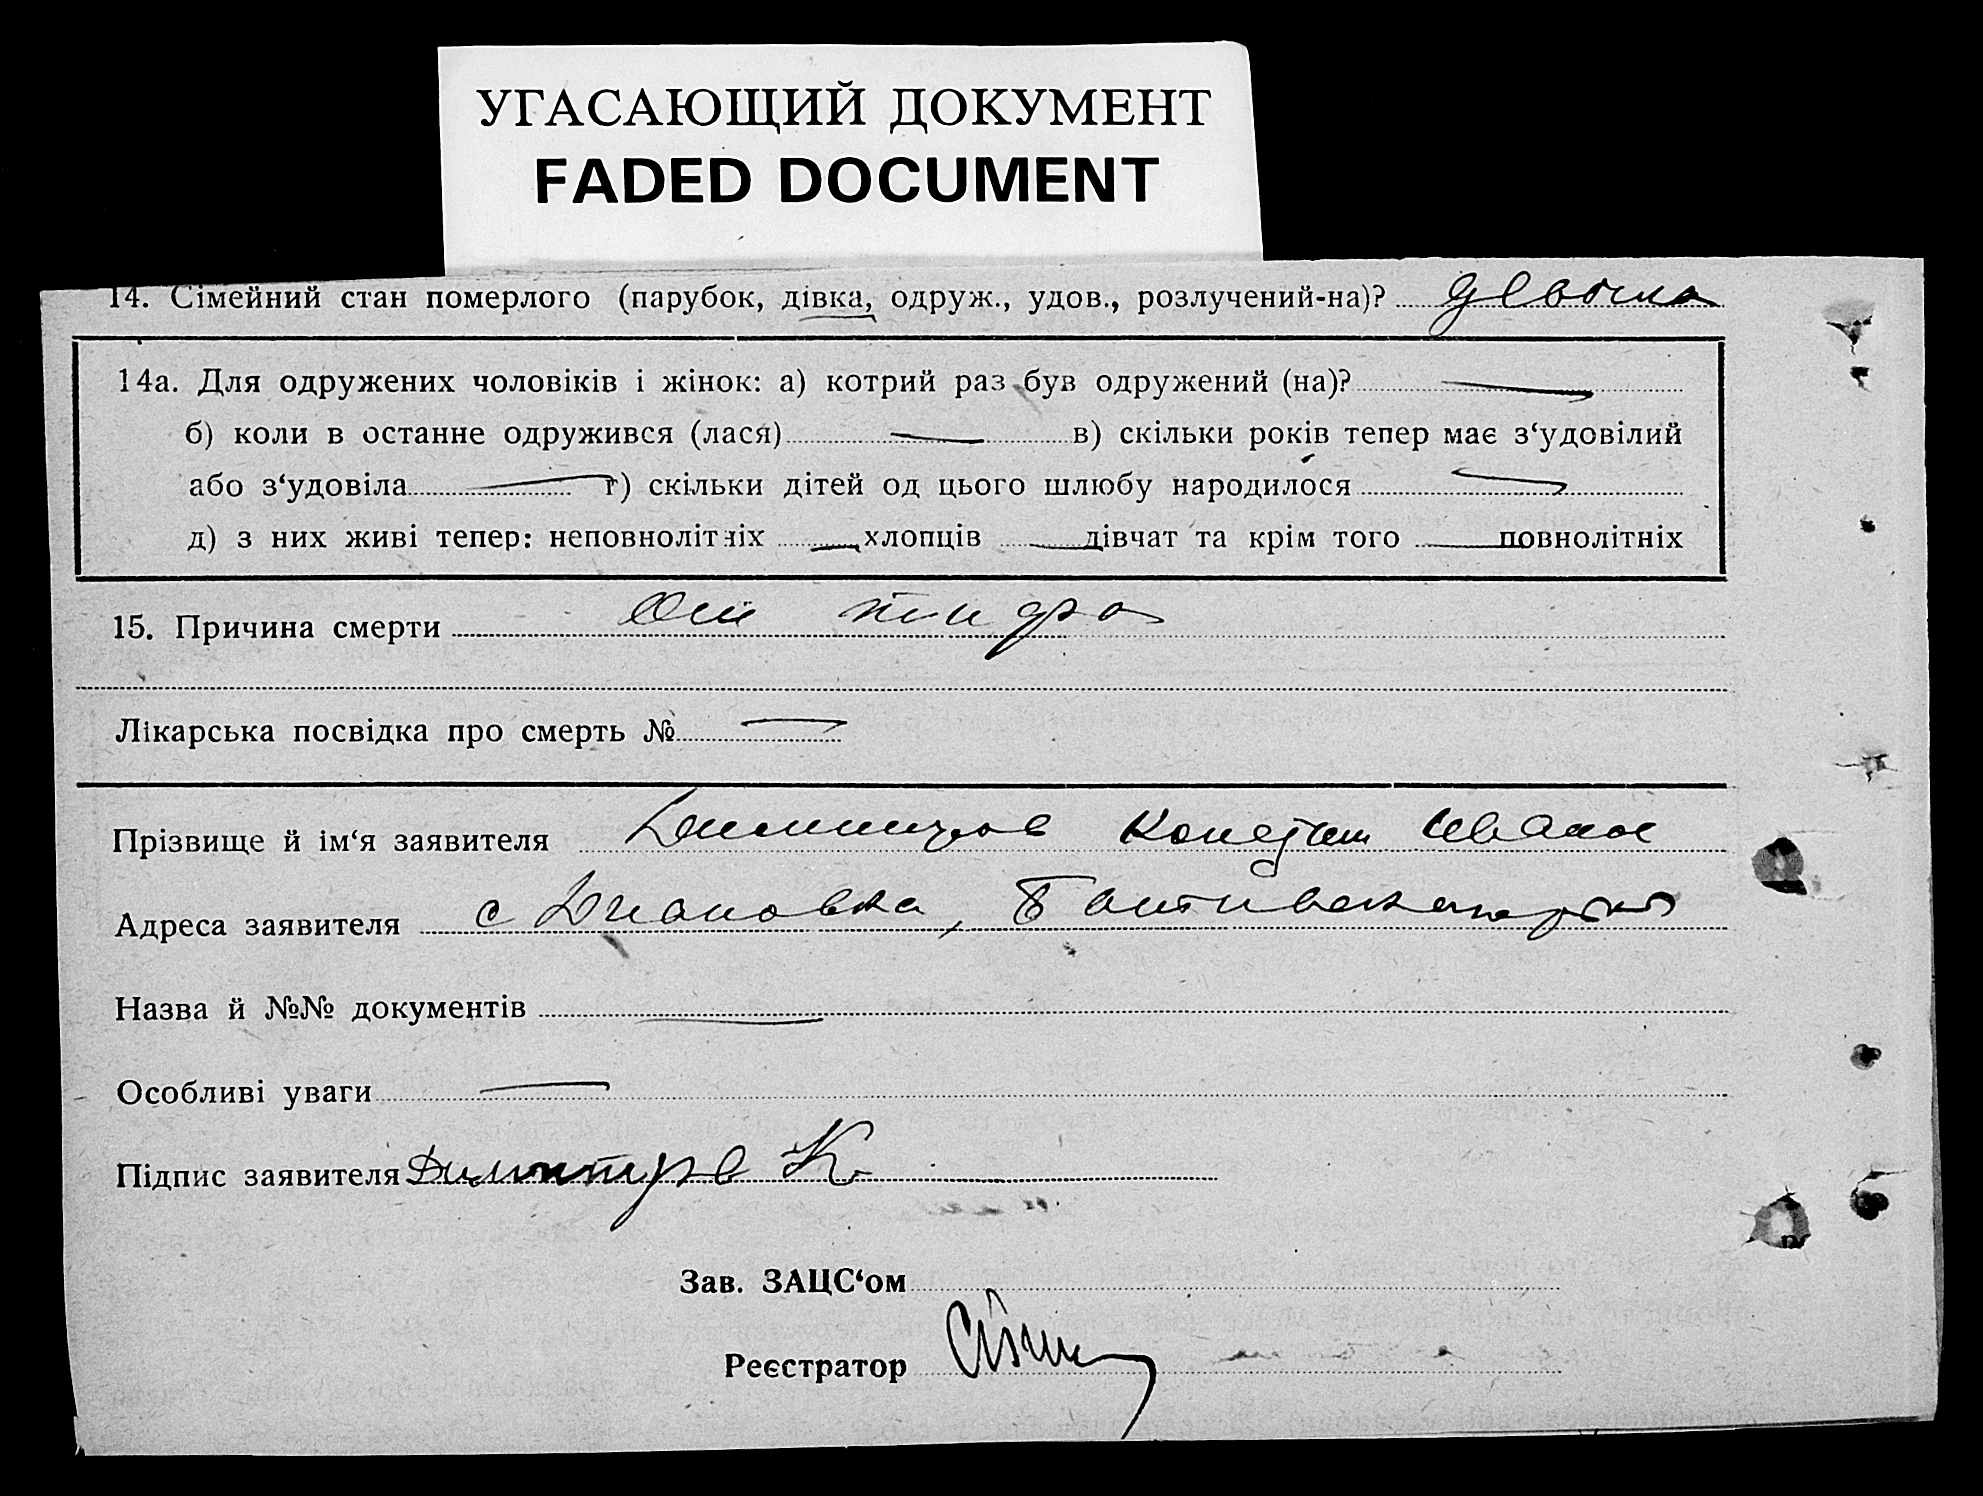 УГАСАЮЩИЙ ДОКУМЕНТ
FADED DOCUMENT
14. Сімейний стан померлого (парубок, дівка, одруж., удов., розлучений-на)? девочка
14а. Для одружених чоловіків і жінок: а) котрий раз був одружений (на)?
б) коли в останне одружився (лася) в) скільки років тепер має з‘удовілий
або з‘удовіла г) скільки дітей од цього шлюбу народилося
д) з них живі тепер: неповнолітніх хлопців дівчат та крім того повнолітніх
15. Причина смерти От тифа
Лікарська посвідка про смерть №
Прізвище й ім‘я заявителя Димитров Иванов
Адреса заявителя с Диановка,
Назва й №№ документів
Особливі уваги
Підпис заявителя Димитров К.
Зав. ЗАЦС‘ом
Реєстратор